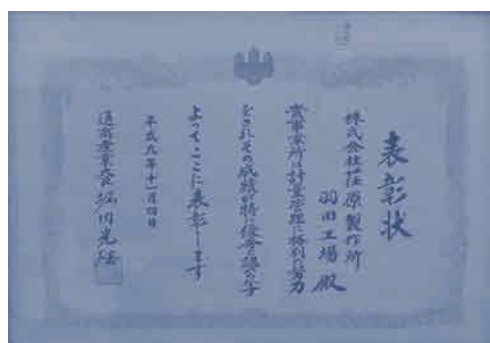 表彰状
株式会社荏原製作所
羽田工場殿
貴事業所は計量管理に格別の努力
をされその成績が特に優秀と認められます
よってここに表彰します
平成九年十一月四日
通商産業大臣堀内光雄